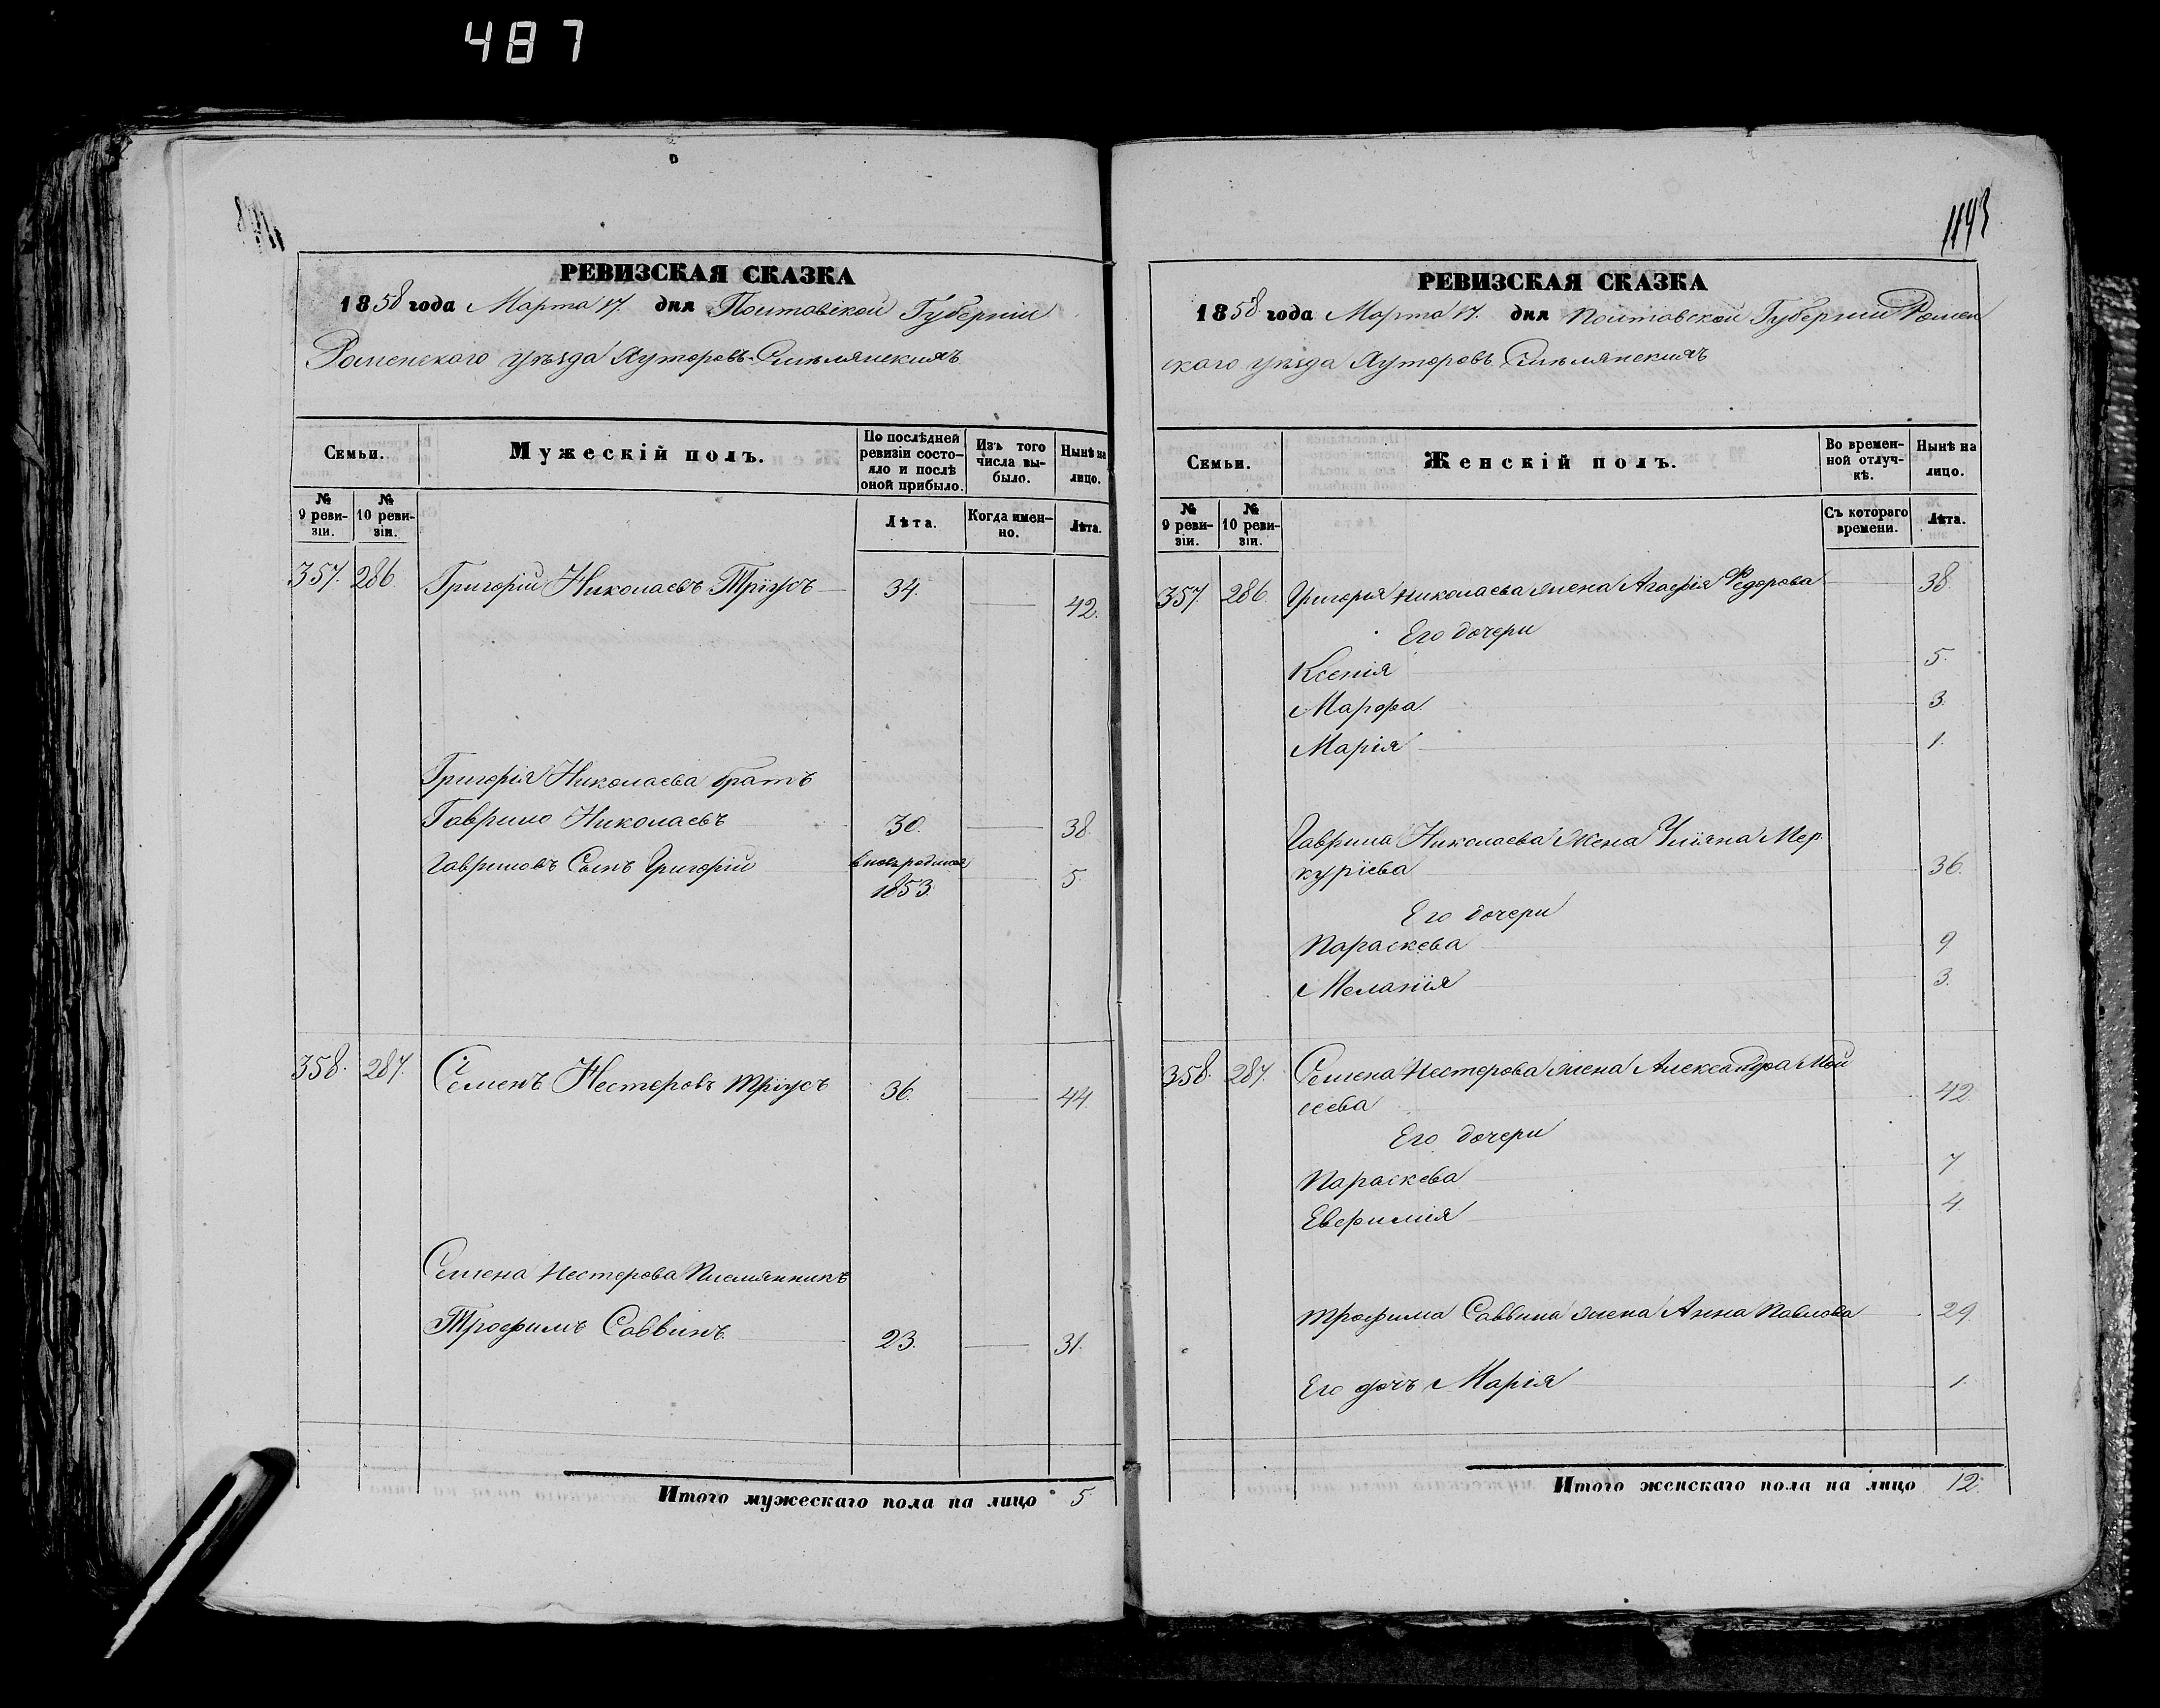 487
1193
РЕВИЗСКАЯ СКАЗКА
1858 года Марта 17. дня Полтавской Губерніи
Роменскаго уѣзда Хуторовъ Смѣлянскихъ
Семьи.
Мужескій полъ.
По послѣдней ревизіи состояло и послѣ оной прибыло.
Изъ того числа выбыло.
Нынѣ на лицо.
№ 9 ревизіи.
№ 10 ревизіи.
Лѣта.
Когда именно.
Лѣта.
357. 286. Григорій Николаевъ Тріусъ 34. 42.
Григорія Николаева братъ
Гаврило Николаевъ 30. 38.
Гавриловъ Сынъ Григорій 5.
1853.
358. 287. Семенъ Нестеровъ Тріусъ 36. 44.
Семена Нестерова Племянникъ
Трофимъ Саввинъ 23. 31.
Итого мужескаго пола на лицо 5
РЕВИЗСКАЯ СКАЗКА
1858 года Марта 17. дня Полтавской Губерніи Ромен
скаго уѣзда Хуторовъ Смѣлянскихъ
Семьи.
Женскій полъ.
Во временной отлучкѣ.
Нынѣ на лицо.
№ 9 ревизіи.
№ 10 ревизіи.
Съ котораго времени.
Лѣта.
357. 286. Григорія Николаева жена Агафія Федорова 38.
Его дочери
Ксенія 5.
Марфа 3.
Марія 1.
Гаврила Николаева Жена Уліяна Мер-
куріева 36.
Его дочери
Параскева 9
Меланія 3.
358. 287. Семена Нестерова жена Александра Мой
сеева 42
Его дочери
Параскева 7
Евфимія 4.
Трофима Саввина жена Анна Павлова 29.
Его дочь Марія 1.
Итого женскаго пола на лицо 12.